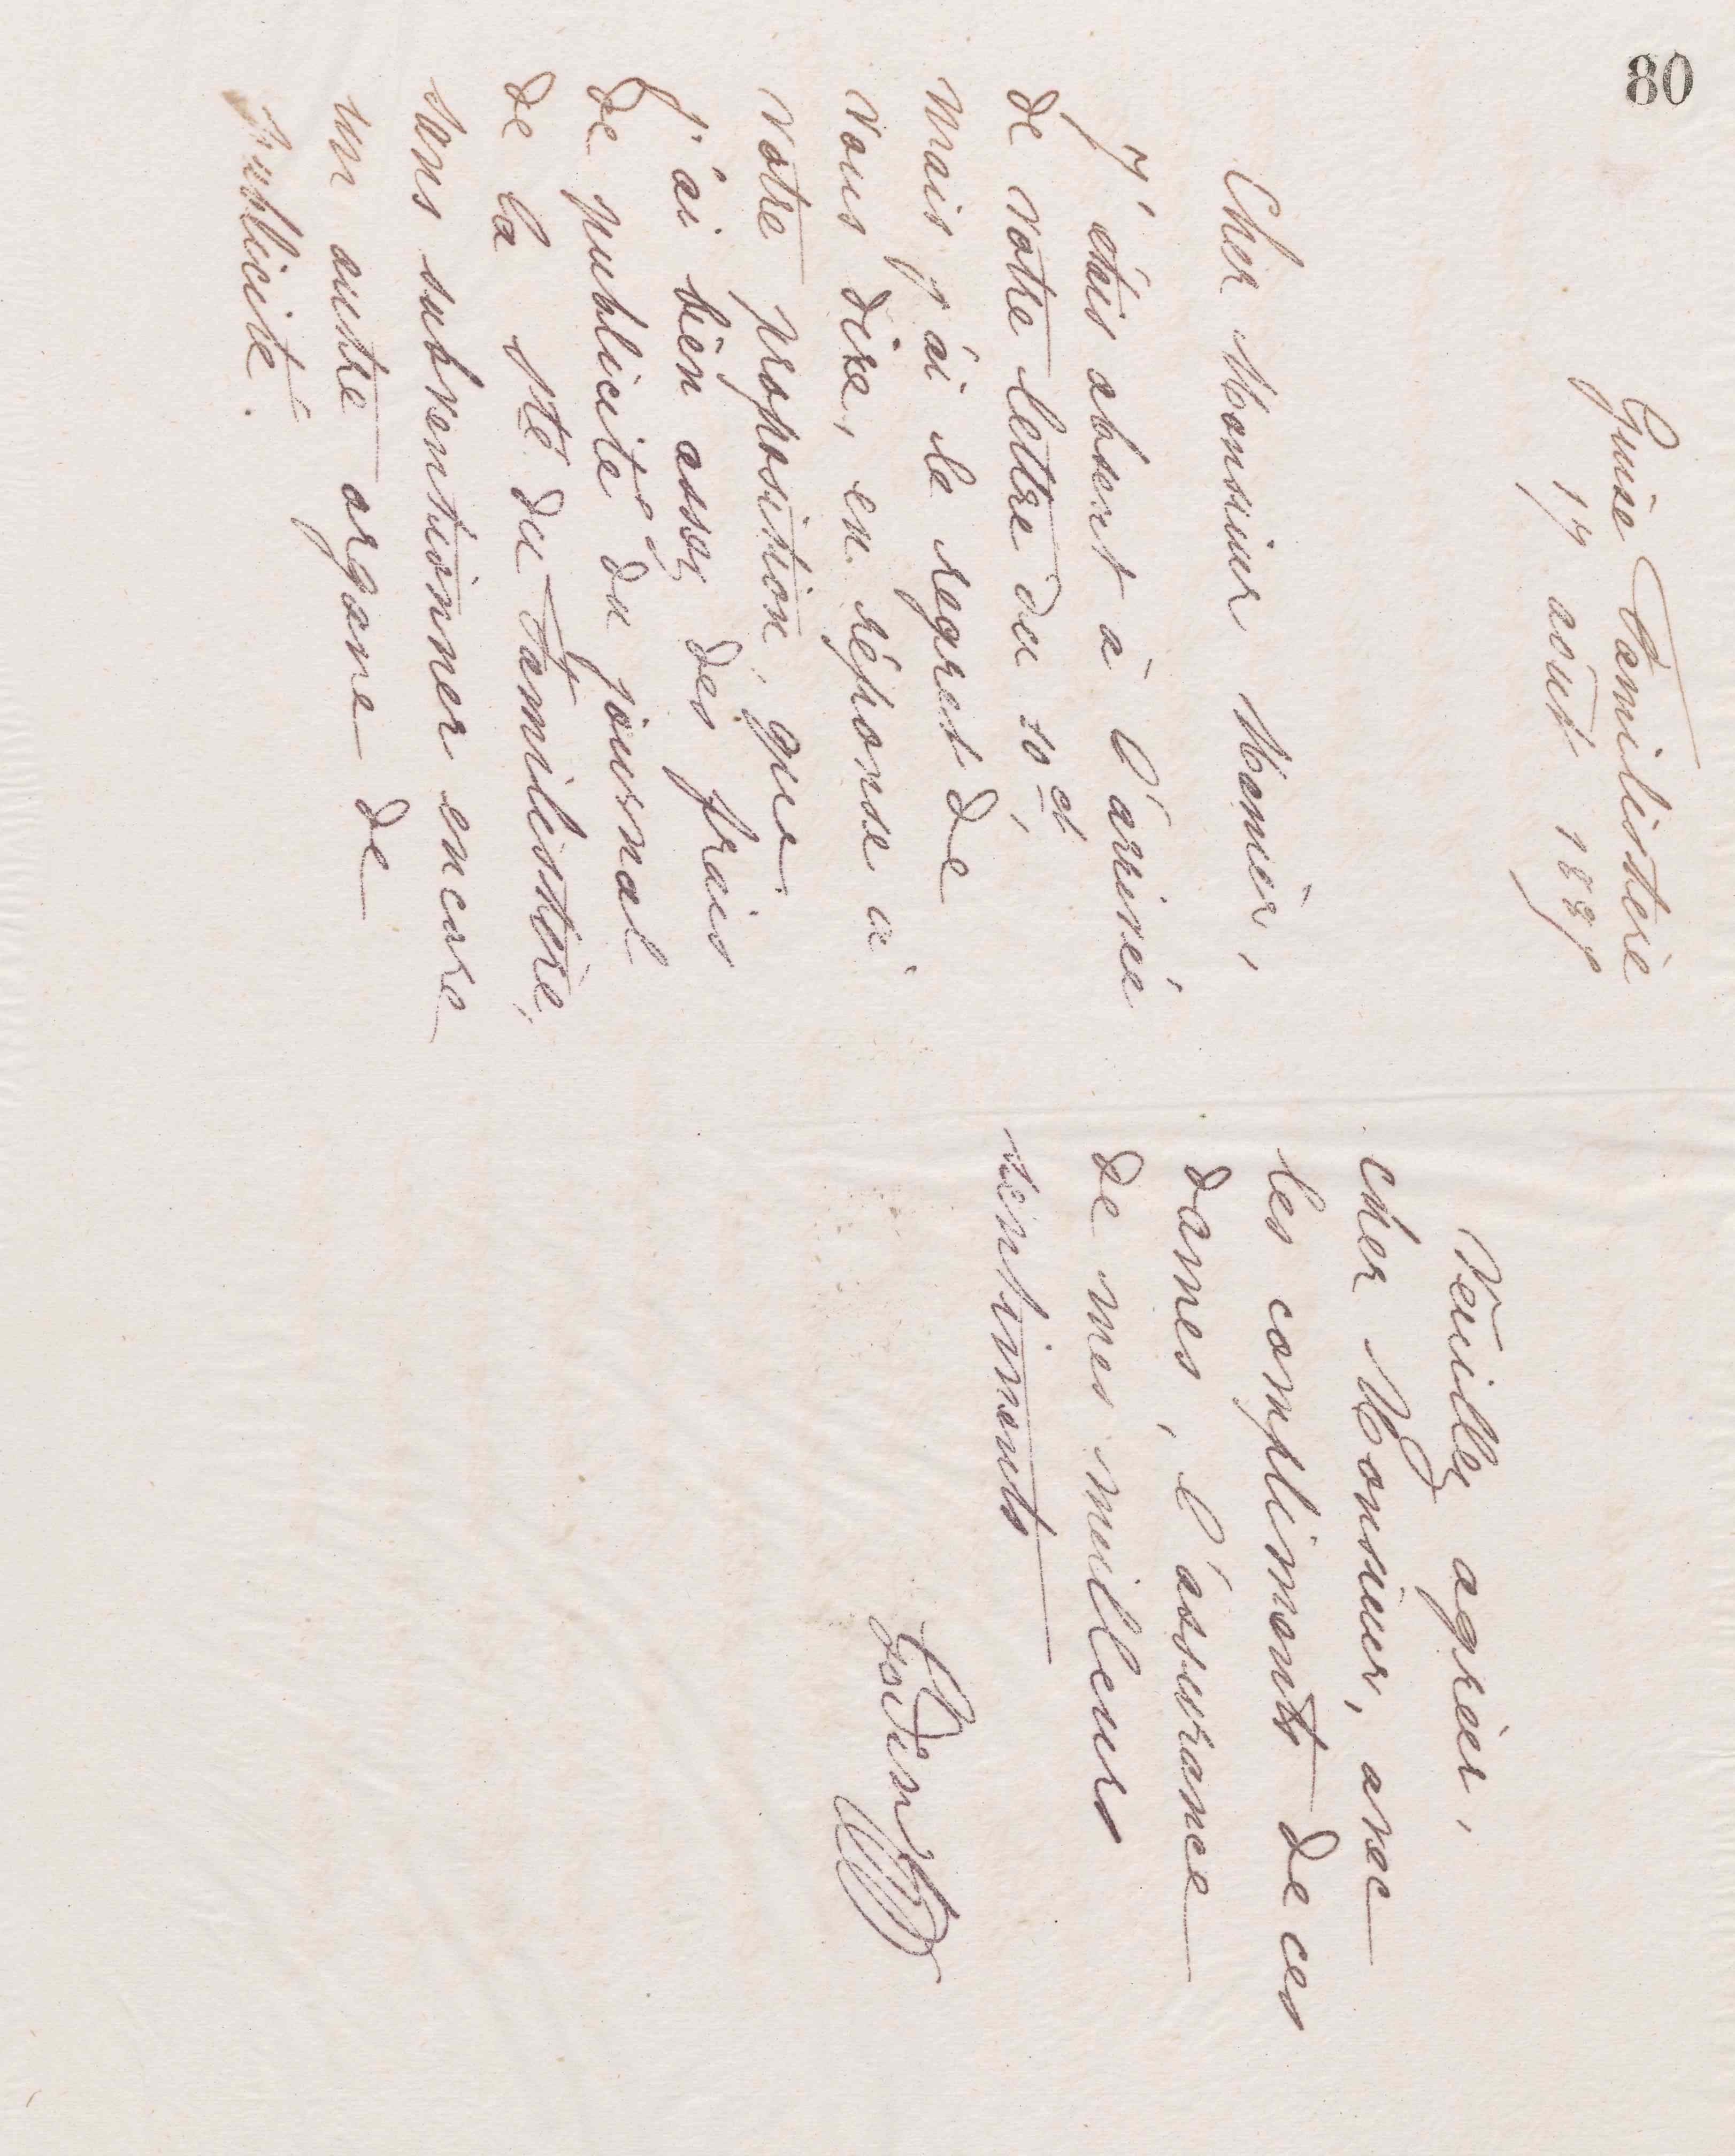 80
Guise Familistère
17 août 1881
Cher Monsieur Menier,
J'étais absent à l'arrivée
de votre lettre du 10 ct,
mais j'ai le regret de
vous dire, en réponse à
votre proposition, que
j'ai bien assez des frais
de publicité du journal
de la Sté du Familistère,
sans subventionner encore
un autre organe de
publicité.
Veuillez agréer,
cher Monsieur, avec
les compliments de ces
dames, l'assurance
de mes meilleurs
sentiments
Godin